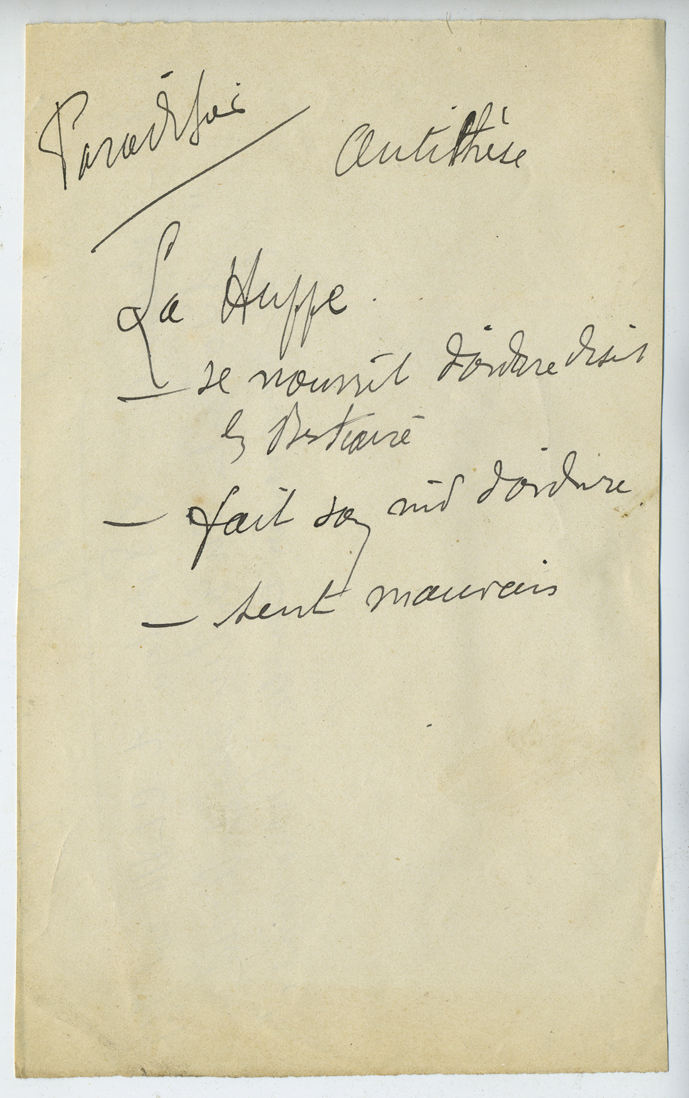 Paradisier
Antithèse
La Huppe
— se nourrit d'ordure disent
les Bestiaires
— fait son nid d'ordure
— sent mauvais